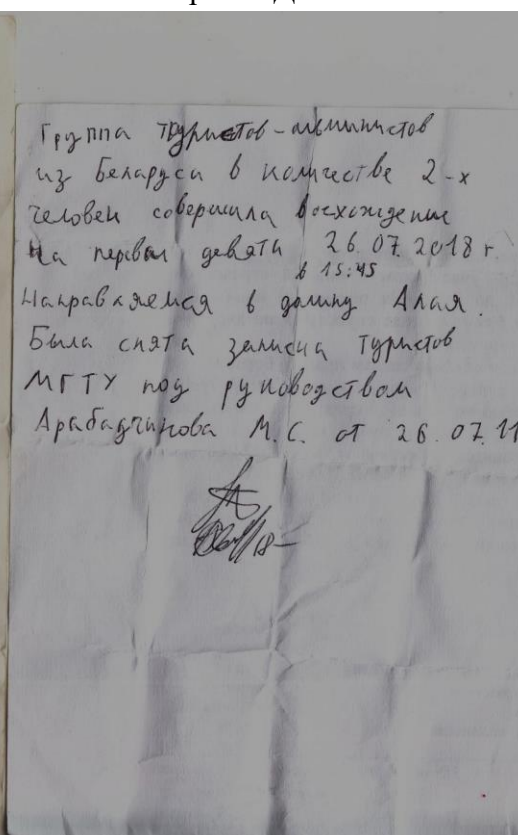 Группа туристов-альпинистов
из Беларуси в количестве 2-х
человек совершила восхождение
на перевал девяти 26.07.2018 г.
в 15:45
Направляемся в долину Алая.
Была снята записка туристов
МГТУ под руководством
Арабаджикова М.С. от 26.07.11